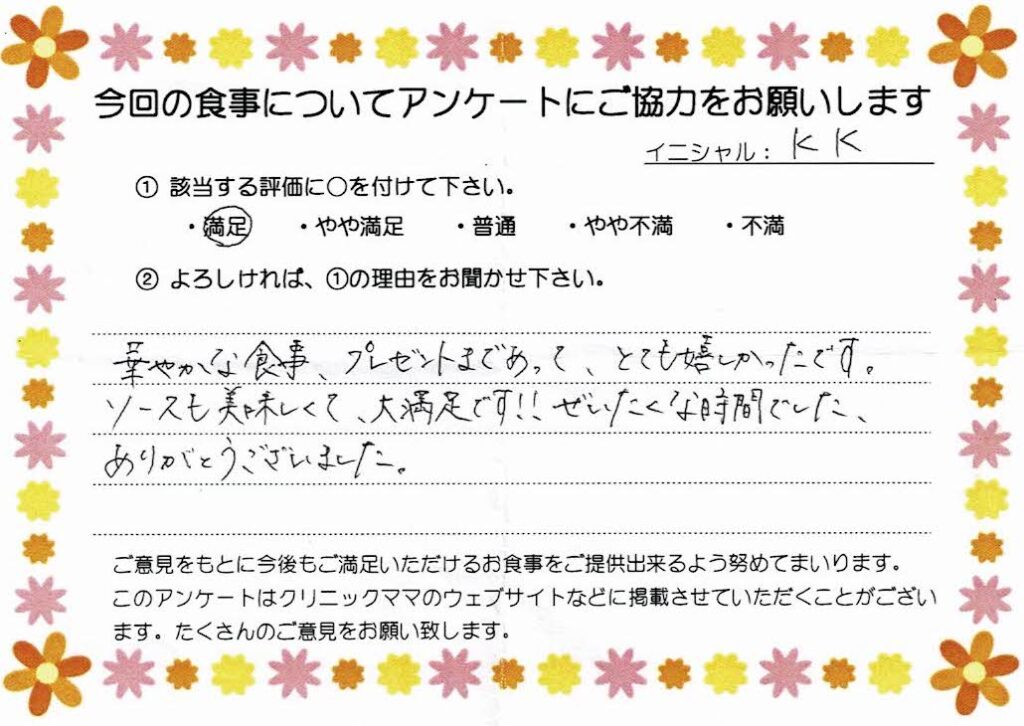 今回の食事についてアンケートにご協力をお願いします
イニシャル： KK
① 該当する評価に〇を付けて下さい。
・満足 ・やや満足 ・普通 ・やや不満 ・不満
② よろしければ、①の理由をお聞かせ下さい。
華やかな食事、プレゼントまであって、とても嬉しかったです。
ソースも美味しくて、大満足です!! ぜいたくな時間でした、
ありがとうございました。
ご意見をもとに今後もご満足いただけるお食事をご提供出来るよう努めてまいります。
このアンケートはクリニックママのウェブサイトなどに掲載させていただくことがござい
ます。たくさんのご意見をお願い致します。